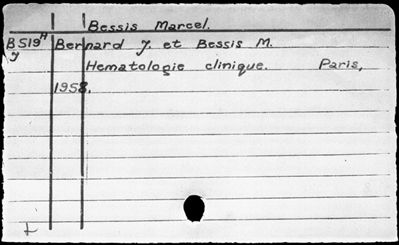 Bessis Marcel.
B519H Bernard J. et Bessis M.
J Hematologie clinique. Paris,
1958.